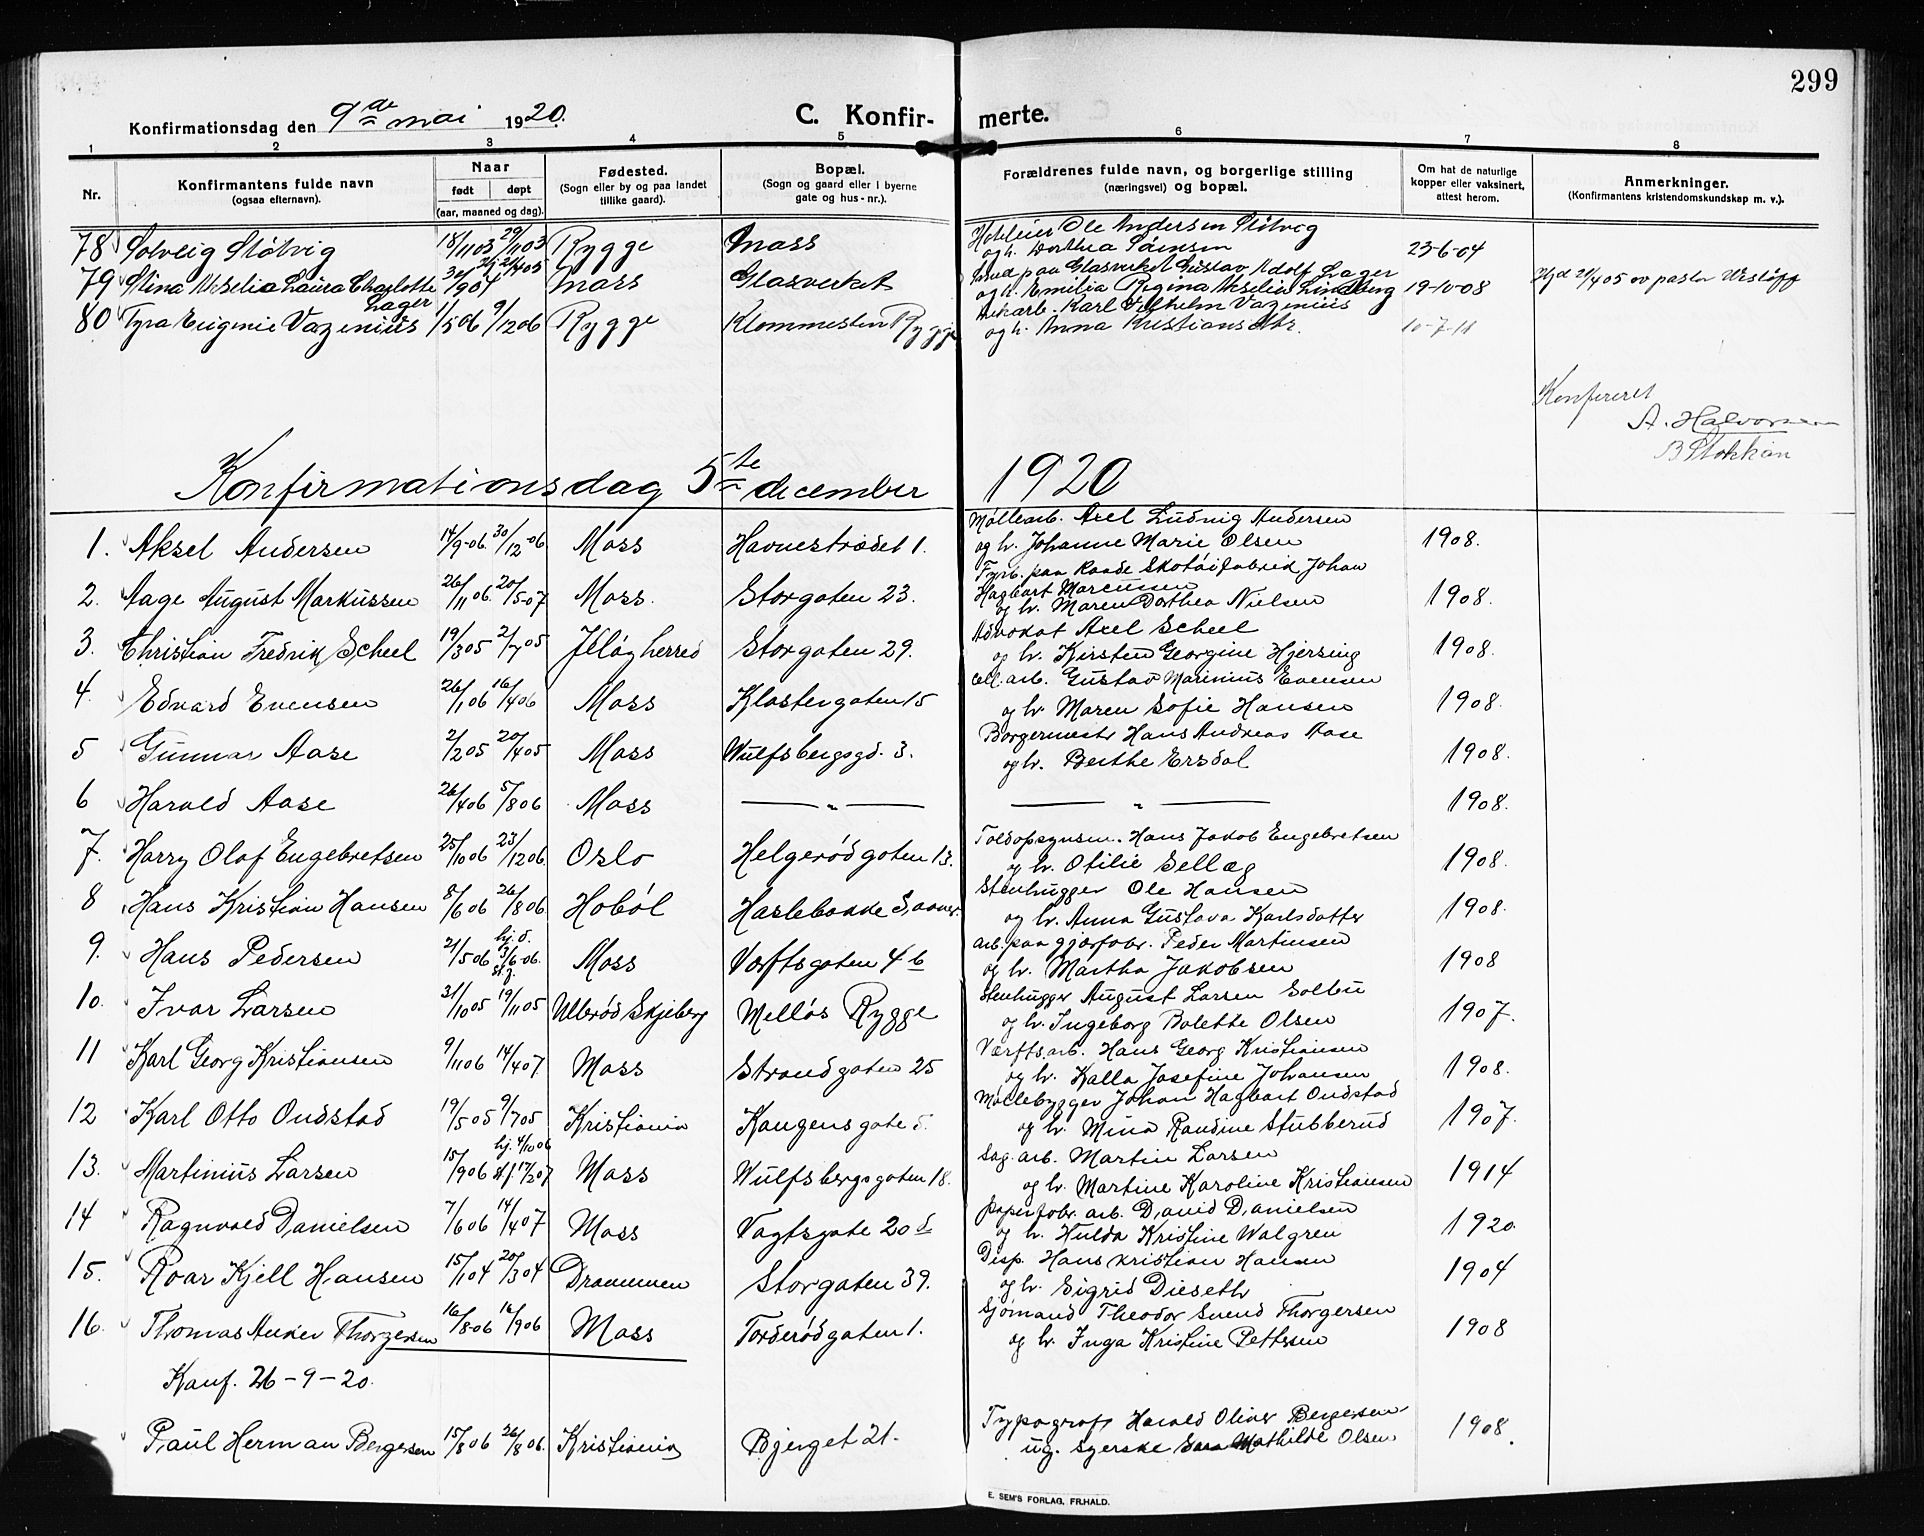 299
Konfirmationsdag den 9de mai 1920.
C. Konfir- merte.
1 2 3 4 5 6 7 8
Nr.
Konfirmantens fulde navn
(ogsaa efternavn).
Naar
født døpt
(aar, maaned og dag).
Fødested.
(Sogn eller by og paa landet
tillike gaard).
Bopæl.
(Sogn og gaard eller i byerne
gate og hus-nr.).
Forældrenes fulde navn, og borgerlige stilling
(næringsvei) og bopæl.
Om hat de naturlige
kopper eller vaksinert,
attest herom.
Anmerkninger.
(Konfirmantens kristendomskundskap m. v.).
78 Solveig Støtvig 18/11 03 29/11 03 Rygge Moss Ole Andersen Støtvig
og h. Dorthea 23-6-04
79 Stina Akselia Laura Charlotte Lager Moss Glasverket paa Glasverket Gustav Adolf Lager
og h. Emilia Regina Akselia Lindberg 19-10-08 Hjd 21/4 05 av pastor
80 Tyra Eugenie Vazenius 1/5 06 9/12 06 Rygge Klommesten Rygge Karl Vilhelm Vazenius
og h. Anna Kristiansdtr. 10-7-11
Konfereret
A. Halvorsen
B Stokkan
Konfirmationsdag 5te december 1920
1. Aksel Andersen 14/9-06 30/12-06 Moss Havnestrædet 1. Møllearb. Axel Ludvig Andersen
og h. Johanne Marie Olsen 1908.
2. Aage August Markussen 26/11 06. 20/5-07 Moss. Storgaten 23. Fyrb. paa Raade Skotøifabrik Johan
Hagbart Marcussen
og h. Maren Dorthea Nielsen 1908.
3. Christian Fredrik Scheel 19/3 05 2/7 05 Jeløy herred Storgaten 29. Advokat Axel Scheel
og h. Kirsten Georgine Hjersing 1908.
4. Edvard Evensen 26/1 06 16/4 06 Moss Klostergaten 15 Cell. arb. Gustav Marinius Evensen
og h. Maren Sofie Hansen 1908.
5 Gunnar Aase 2/2 05 20/4 05 Moss Wulfsbergsgd. 3. Borgermestr Hans Andreas Aase
og h. Berthe Ersdal 1908.
6 Harald Aase 26/4 06 5/8 06 Moss — " — — " — 1908.
7. Harry Olaf Engebretsen 25/10 06 23/12 06. Oslo Helgerødgaten 13. Toldopsynsm. Hans Jakob Engebretsen
og h. Otilie Sellæg 1908.
8 Hans Kristian Hansen 8/6 06 26/8 06. Hobøl Haslebakke Stenhugger Ole Hansen
og h. Anna Gustava Karlsdatter 1908.
9. Hans Pedersen 21/5 06 hj. d. 3/6-06. Moss Værftsgaten 4 b arb. paa gjærfabr. Peder Martinsen
og h. Martha Jakobsen 1908
10. Ivar Larsen 31/10 05 19/11 05 Ullerød Skjeberg Melløs Rygge Stenhugger August Larsen Solbu
og h. Ingeborg Bolette Olsen 1907.
11 Karl Georg Kristiansen 9/11 06 14/4 07 Moss Strandgaten 25 Værftsarb. Hans Georg Kristiansen
og h. Kalla Josefine Johansen 1908.
12 Karl Otto Ondstad 19/5 05 9/7 05 Kristiania Kongensgate Møllebygger Johan Hagbart Ondstad
og h. Mina Randine Stubberud 1907.
13. Martinius Larsen 15/9 06 hj. 4/10 06 st f. 17/2 07 Moss Wulfsbergsgaten 18. Sag. arb. Martin Larsen
og h. Martine Karoline Kristiansen 1914
14 Ragnvald Danielsen 7/6 06 14/4 07 Moss Vogtsgate 20 d papirfabr. arb. David Danielsen
og h. Hulda Kristine Walgren 1920.
15. Roar Kjell Hansen 15/1 04 20/3 04 Drammen Storgaten 39. Disp. Hans Kristian Hansen
og h. Sigrid Dieseth 1904
16. Thomas Anker Thorgersen 16/8-06 16/9 06 Moss Torderødgaten 1. Sjømand Theodor Svend Thorgersen
og h. Inga Kristine Pettersen 1908
Konf. 26-9-20.
Paul Herman Bergersen 15/8 06 26/8 06. Kristiania Bjerget 21. Typograf Harald Oliver Bergersen
ug. syerske Sara Mathilde Olsen 1908.
E. SEM'S FORLAG, FR.HALD.